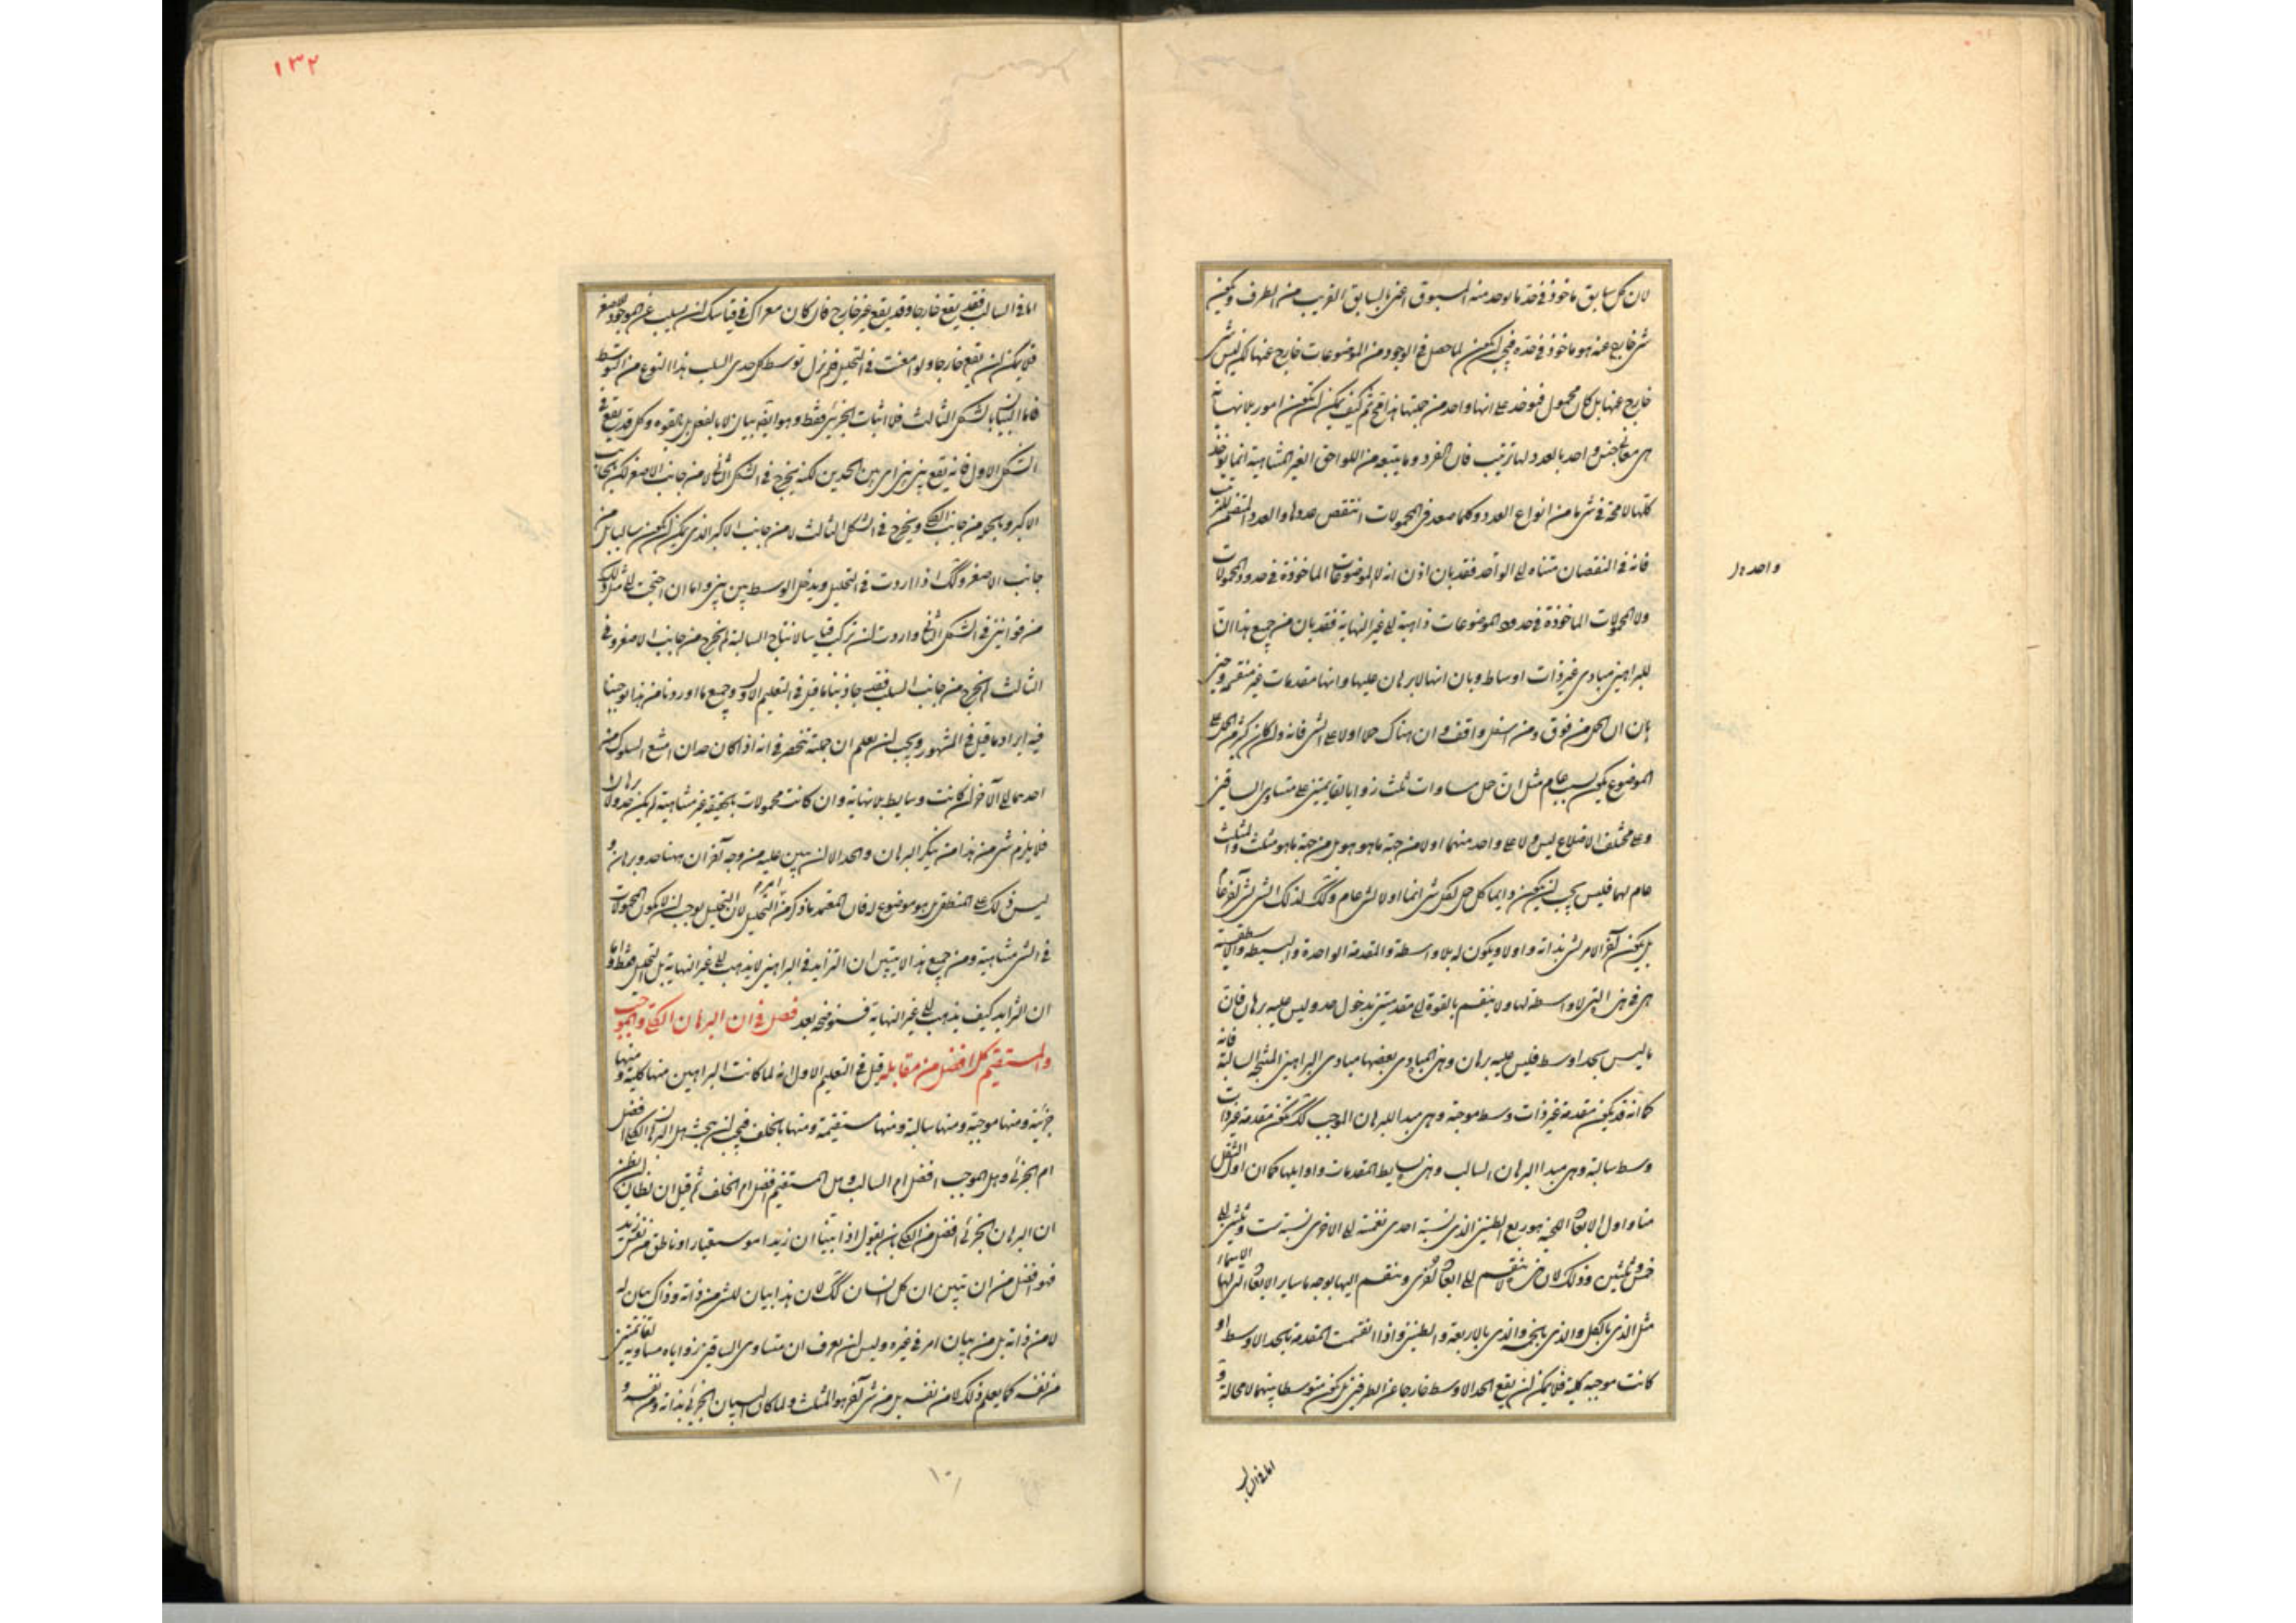 لان كل سابق ماخوذ فى حد ما يوجد منه المسبوق اعنى بالسابق القريب من الطرف ويكون
شى خارج عنه هو ماخوذ فى حده فيجب ان يكون لما حصل فى الوجود من الموضوعات خارج عنها لكن ليس شى
خارج عنها بل كان محمول فيوخذ على انها واحد من جملتها هذا قبح ثم كيف يمكن ان يكون امور بلا نهاية
هى معا فى جنس واحد بالعدد لها ترتيب فان الفرد وما يتبعه من اللواحق الغير المتناهية انما يوخذ
كلها لا محة فى شى ما من انواع العدد وكلما صعد فى المحمولات انتقص عددها والعدد المقتضى للترتيب
فانه فى النقصان متناه الى الواحد فقد بان اذن انه لا الموضوعات الماخوذة فى حدود المحمولات
واحد دل
ولا المحمولات الماخوذة فى حدود الموضوعات ذاهبة الى غير النهاية فقد بان من جميع هذا ان
للبراهين مبادى غير ذات اوساط وبان انها لا برهان عليها وانها مقدمات غير منقسمة وحين
بان ان الحمل من فوق ومن اسفل واقف وان هناك حملا اولا على الشى فانه وان كان كثير من الحمل على
الموضوع يكون بسبب عام مثل ان حمل مساوات ثلث زوايا لقايمتين على متساوى الساقين
وعلى مختلف الاضلاع ليس ولا على واحد منهما اولا من جهة ما هو هو بل من جهة ما هو مثلث والمثلث
عام لهما فليس يجب ان يكون دايما كل حمل لكل شى انما اولا لشى عام وكذلك لذلك الشى لشى آخر عام
بل يكون آخر الامر لشى بذاته واولا ويكون له بلا واسطة والمقدمة الواحدة والبسيطة والاسطقسية
هى فى هذه التى لا واسطة لها ولا ينقسم بالقوة الى مقدمتين بدخول حد وليس عليه برهان فان
ما ليس بحد اوسط فليس عليه برهان وهذه المبادى بعضها مبادى البراهين المنتجة السالبة فانه
كما انه قد يكون مقدمة غير ذات وسط موجبة وهى مبدا للبرهان الموجب كذلك تكون مقدمة غير ذات
وسط سالبة وهى مبدا البرهان السالب وهذه بسايط المقدمات واوايلها كما ان اول الثقل
منا واول الابعاد اللحنية هو ربع الطنين الذى نسبة احدى نغمتيه الى الاخرى نسبة ست وثلثين الى
خمس وثلثين وذلك لان هذا لا ينقسم الى ابعاد اخرى وينقسم اليها بوجه ما ساير الابعاد التى لها الاسماء
مثل الذى بالكل والذى بالخمسة والذى بالاربعة والطنين واذا انقسمت المقدمة بالحد الاوسط او
كانت موجبة كلية فلا يمكن ان يقع الحد الاوسط خارجا عن الطرفين بل يكون متوسطا بينهما لا محالة و
اما فى السالب
١٣٢
اما فى السالب فقد يقع خارجا وقد يقع غير خارج فان كان معراك فى قياسك ان يسلب عن الموجود للاصغر
فلا يمكن ان يقع خارجا ولو امعنت فى التحليل فلم نزل توسط كل حدى السلب هذا النوع من التوسط
فاما البيان بالشكل الثالث فلا اثبات الجزئى فقط وهو ايضا بيان لا بالفعل بل بالقوة وكل قد يقع فى
الشكل الاول فانه يقع بين بين اى بين الحدين لكنه يخرج فى الشكل الثانى لا من جانب الاصغر لكن بجانب
الاكبر وما يجوز من جانب الكلى ويخرج فى الشكل الثالث لا من جانب الاكبر الذى يمكن ان يكون سالبا بل من
جانب الاصغر وكذلك اذا اردت فى التحليل ويدخل الوسط بين بين واما ان احتجت الى مثل ذلك
من قوانين فى الشكل الثانى واردت ان تركب قياسا لانتاج السالبة لم يخرج من جانب الاصغر وفى
الثالث لم يخرج من جانب السلب فقد حاذينا ما قيل فى التعليم الاول وجميع ما اوردنا من هذا توخينا
فيه ايراد ما قيل فى المشهور ويجب ان يعلم ان جملة تنحصر فى انه اذا كان حدان امتنع السلوك من
احدهما الى الآخر ان كانت وسايط بلا نهاية وان كانت محمولات بحقيقة غير متناهية لم يكن حد ولا برهان
فلا يلزم شى من هذا من ينكر البرهان والحد الا ان يبين عليه من وجه آخر ان ههنا حد وبرهان و
ليس ذلك على المنطقى بل هو موضوع له فان المعتمد ما ذكر من التحليل لان التحليل يوجب ان لا يكون المحمولات
فى الشى متناهية ومن جميع هذا لا يتبين ان التزايد فى البراهين لا يذهب الى غير النهاية بل التحليل فقط واما
ان التزايد كيف يذهب الى غير النهاية فسنوضحه بعد فصل فى ان البرهان الكلى والموجب
والمستقيم كل افضل من مقابله قيل فى التعليم الاول انه لما كانت البراهين منها كلية ومنها
جزئية ومنها موجبة ومنها سالبة ومنها مستقيمة ومنها بالخلف فيجب ان يبحث هل البرهان الكلى افضل
ام الجزئى وهل الموجب افضل ام السالب وهل المستقيم افضل ام الخلف ثم قيل ان لظان ان يظن
ان البرهان الجزئى افضل من الكلى بان يقول اذا بينا ان زيدا موسيقار او ناطق من نفس زيد
فهو افضل من ان يتبين ان كل انسان كذلك لان هذا بيان للشى من ذاته وذاك بيان له
لا من ذاته بل من بيان امر فى غيره وليس ان يعرف ان متساوى الساقين زواياه مساوية لقائمتين
من نفسه كما يعلم ذلك لا من نفسه بل من شى آخر هو المثلث ولما كان البيان الجزئى بذاته ومن نفسه و